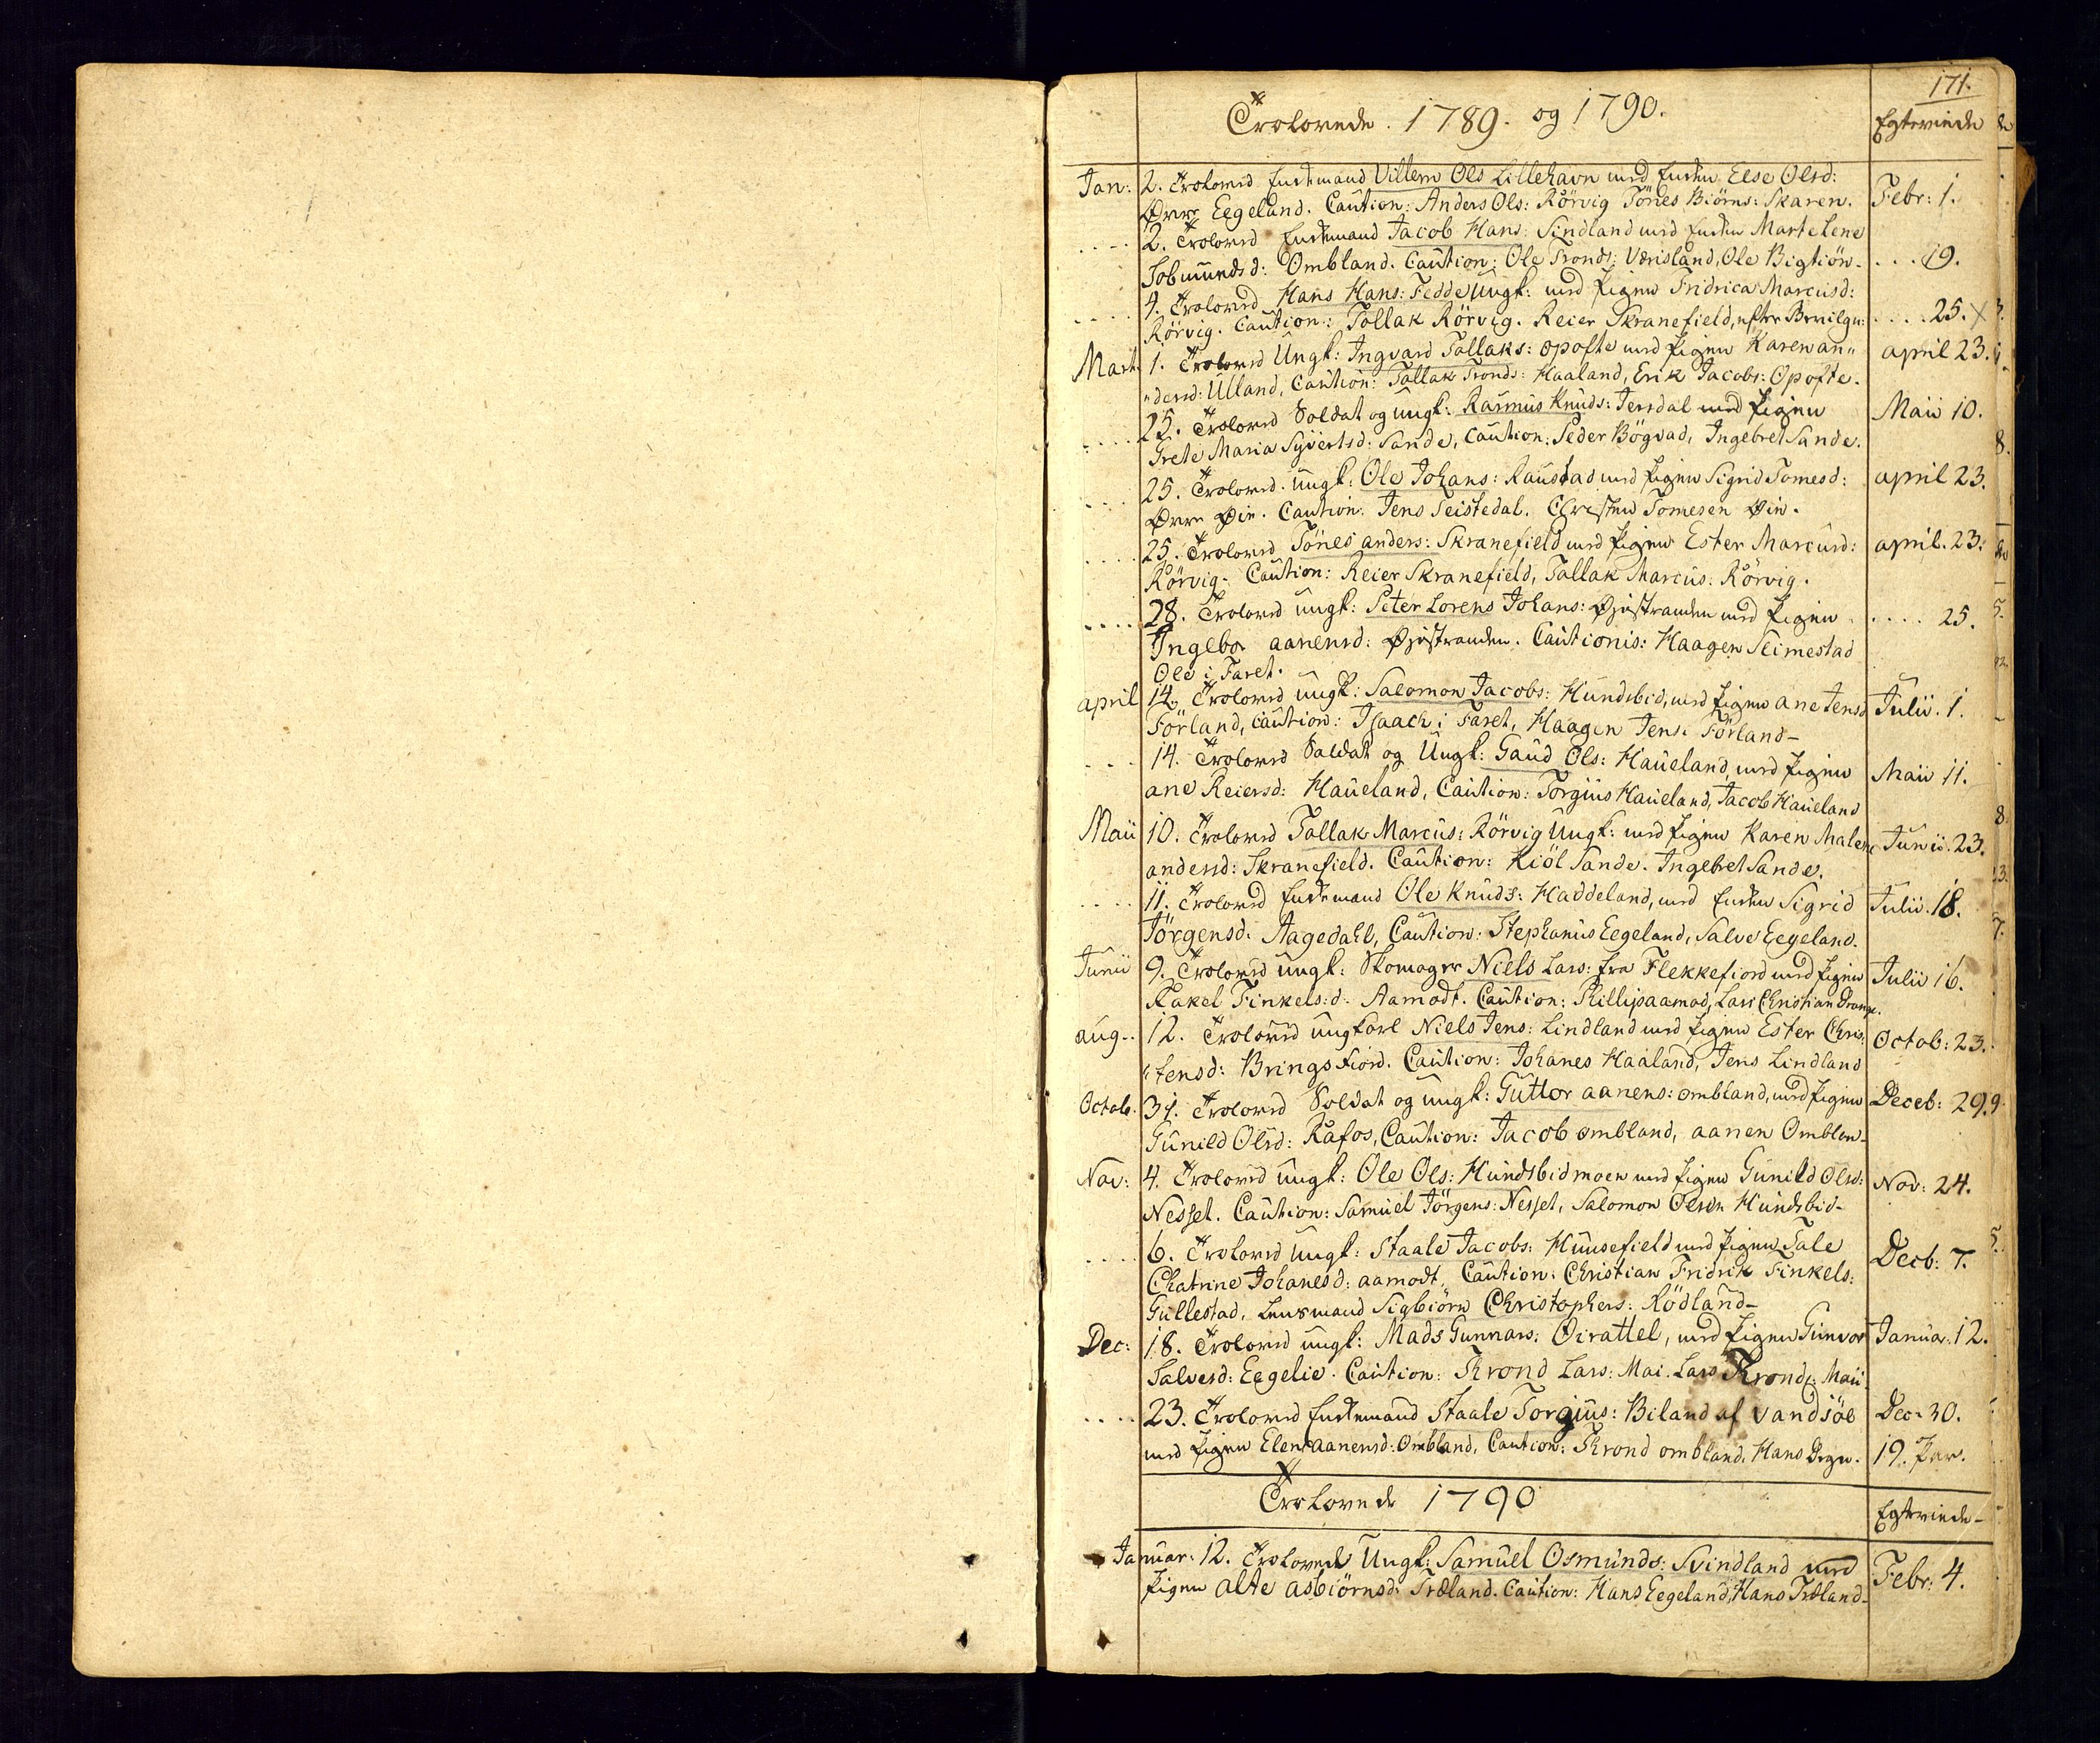 171.
Trolovede 1789. og 1790. Egteviede
Jan: 2. Troloved Enkemand Villem Ols Lillehavn med Enken Else Olsd: Febr: 1.
Øvre Eegeland. Caution: Anders Ols: Rörvig Tönes Biörns: Skaren.
.... 2. Troloved Enkemand Jacob Hans: Lindland med Enken Marte Lene
Tobmundsd: Ombland. Caution: Ole Tronds: Værisland, Ole Bigtiön- ... 19.
.... 4. Troloved Hans Hans: Fedde Ungk: med Pigen Fridrica Marcusd:
Rörvig. Caution: Tollak Rörvig. Reier Skranefield, efter Bevilgn: .... 25. x
Mart: 1. Troloved Ungk: Ingvard Tallaks: Opofte med Pigen Karen an„ april 23.
„dersd: Ulland, Caution: Tallak Tronds: Haaland, Erik Jacobs: Opofte.
.... 25. Trolovd Soldat og Ungk: Rasmus Knuds: Jerdal med Pigen Maii 10.
Grete Maria Syvertsd: Sande, Caution: Peder Bögvad, Ingebret Sande.
... 25. Trolovd. Ungk: Ole Johans: Raustad med Pigen Sigrid Tomesd: april 23.
Øvre Øie. Caution: Jens Seistedal. Christen Tomesen Øie.
.... 25. Trolovd Tönes anders: Skranefield med Pigen Ester Marcusd: april. 23.
Rörvig. Caution: Reier Skranefield, Tallak Marcus: Rörvig.
.... 28. Trolovd ungk: Peter Lorens Johans: Øjestranden med Pigen .... 25.
Ingebor aanensd: Øjestranden. Cautionis: Haagen Seimestad
Ole i Faret.
april 14. Trolovd ungk: Salomon Jacobs: Hundsbid, med Pigen ane Jensd Julii. 1.
Förland, Caution: Isaach i Faret, Haagen Jens: Förland-
.... 14. Trolovd Saldat og Ungk: Gaud Ols: Haueland, med Pigen Maii 11.
ane Reiersd: Haueland, Caution: Torgius Haueland, Jacob Haueland
Maii 10. Trolovd Tallak Marcus: Rörvig Ungk: med Pigen Karen Malene Junii. 23.
andersd: Skranefield. Caution: Kiöl Sande. Ingebret Sande.
.... 11. Trolovd Enkemand Ole Knuds: Haddeland, med Enken Sigrid Julii. 18.
Jörgensd: Aagedahl, Caution: Stephanus Eegeland, Salve Eegeland.
Junii 9. Trolovd ungk: Skomager Niels Lars: fra Flekkefiord med Pigen Julii 16.
Rakel Finkels:d: Aamodt. Caution: Phillip aamod, Lars Christian
aug.. 12. Trolovd ungkarl Niels Jens: Lindland med Pigen Ester Chris: Octob: 23.
„tensd: Bringsfiord. Caution: Johanes Haaland, Jens Lindland
Octob. 31. Trolovd Soldat og ungk: Guttor aanens: ombland, med Pigen Deceb: 29.
Gunild Olsd: Rafos, Caution: Jacob ombland, aanen Omblan-
Nov: 4. Trolovd ungk: Ole Ols: Hundsbidmoen med Pigen Gunild Olsd: Nov: 24.
Nesset. Caution: Samuel Jörgens: Nesset, Salomon Olsen Hundsbid-
.... 6. Trolovd ungk: Staale Jacobs: Huusefield med Pigen Tale Decb: 7.
Chatrine Johanesd: aamodt, Caution: Christian Fridrik Finkels:
Gullestad, Lensmand Sigbiörn Christophers: Rödland-
Dec: 18. Trolovd ungk: Mads Gunnars: Oirattel, med Pigen Gunvor Januar: 12.
Salvesd: Eegelie. Caution: Trond Lars: Mai. Lars Tronds: Maii
.... 23. Trolovd Enkemand Staale Torgius: Biland af Vandsöe Dec: 30.
med Pigen Elen aanensd: Ombland, Caution: Trond ombland, Hans Degn. 19. Par.
Trolovede 1790 Egteviede-
Januar: 12. Trolovede Ungk: Samuel Osmunds: Svindland med Febr: 4.
Pigen alte asbiörnsd: Træland. Caution: Hans Eegeland, Hans Træland-